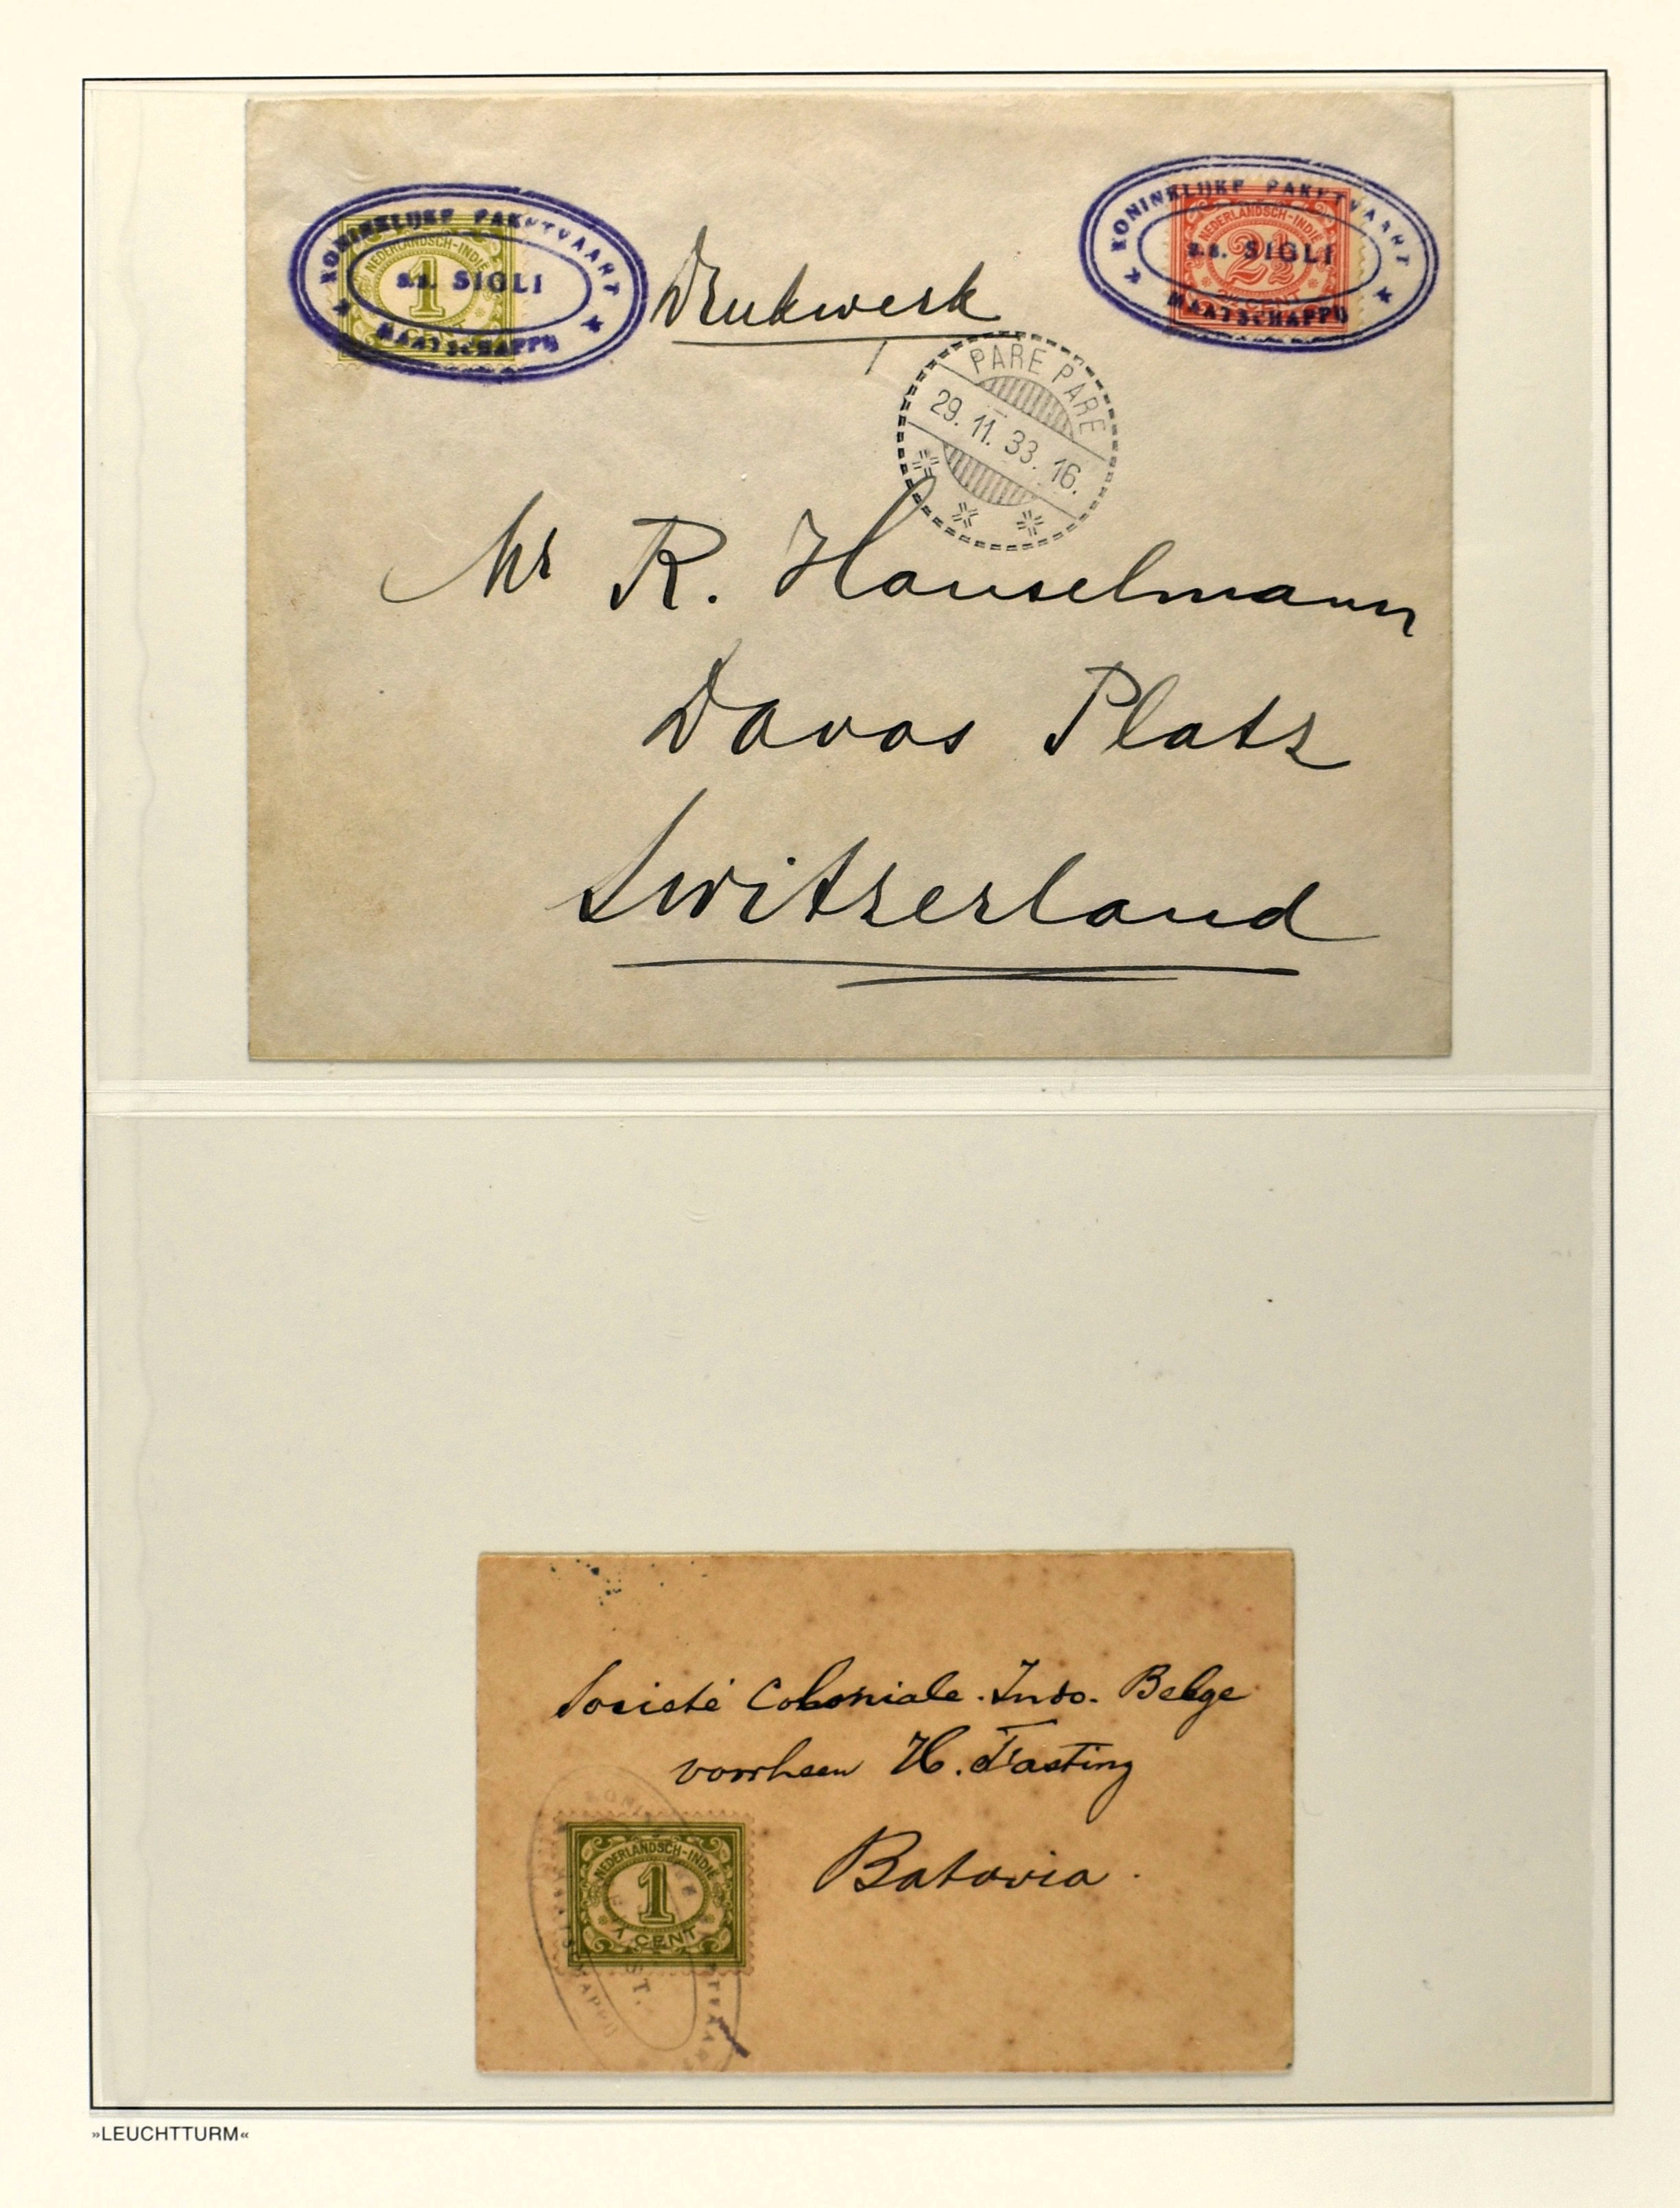 KONINKLIJKE PAKETVAART
NEDERLANDSCH-INDIË
1
s.s. SIGLI
MAATSCHAPPIJ
Drukwerk
KONINKLIJKE PAKETVAART
NEDERLANDSCH-INDIË
2½
s.s. SIGLI
2½ CENT
MAATSCHAPPIJ
PARE PARE
29. 11. 33. 16.
Mr R. Hauselmann
Davos Platz
Switzerland
Societé Coloniale. Indo. Belge
voorheen H. Fasting
Batavia.
NEDERLANDSCH-INDIË
1
1 CENT
MAATSCHAPPIJ
»LEUCHTTURM«